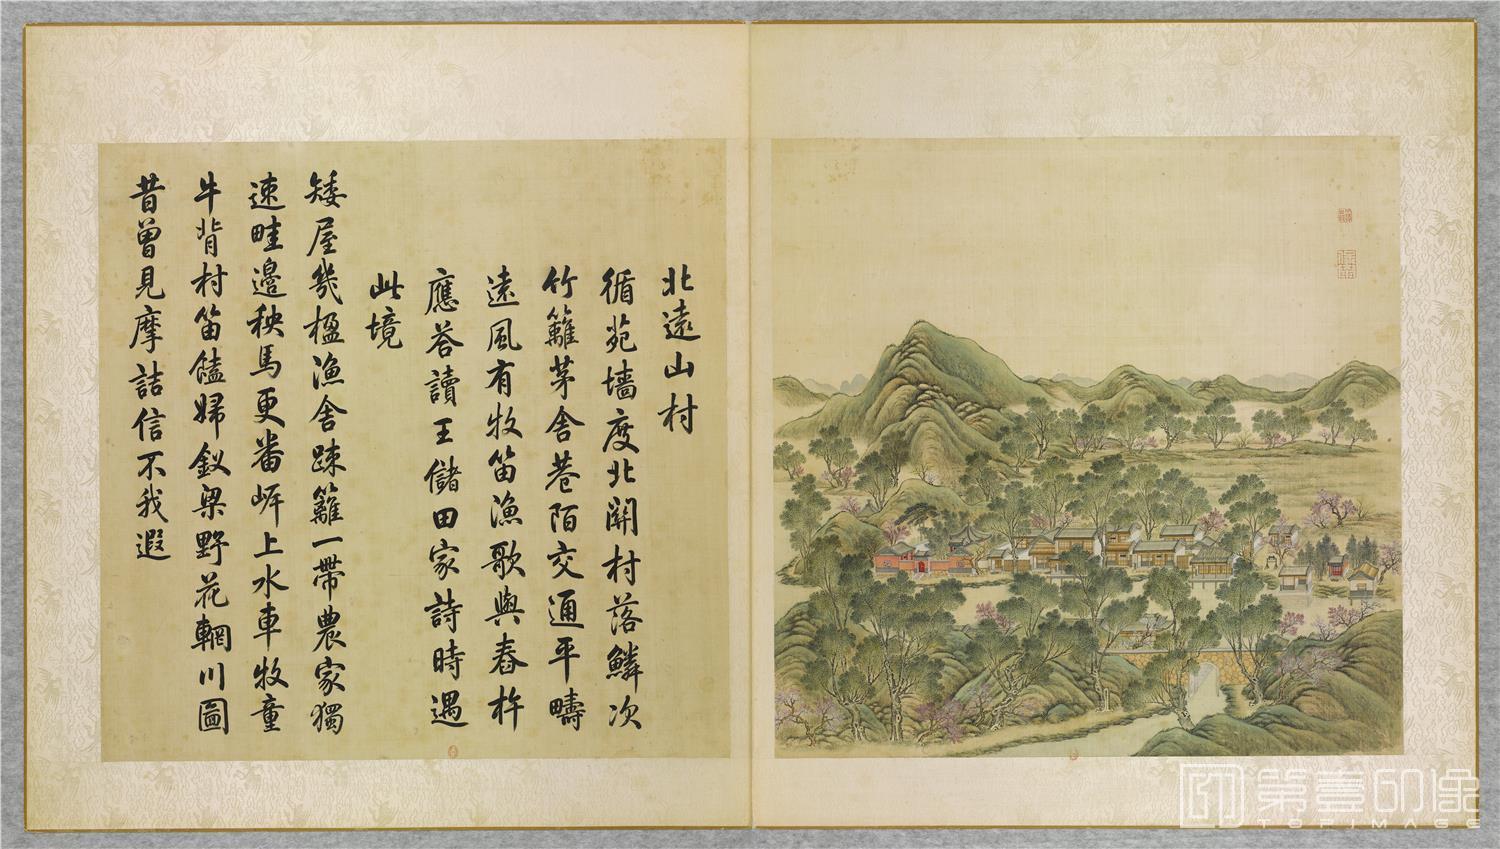 北遠山村
循苑墻度北關村落鱗次
竹籬茅舍巷陌交通平疇
遠風有牧笛漁歌與舂杵
應答讀王儲田家詩時遇
此境
矮屋幾楹漁舍疎籬一帶農家獨
速畦邊秧馬更番岸上水車牧童
牛背村笛饁婦釵梁野花輞川圖
昔曾見摩詰信不我遐
第壹印像
TOPIMAGE